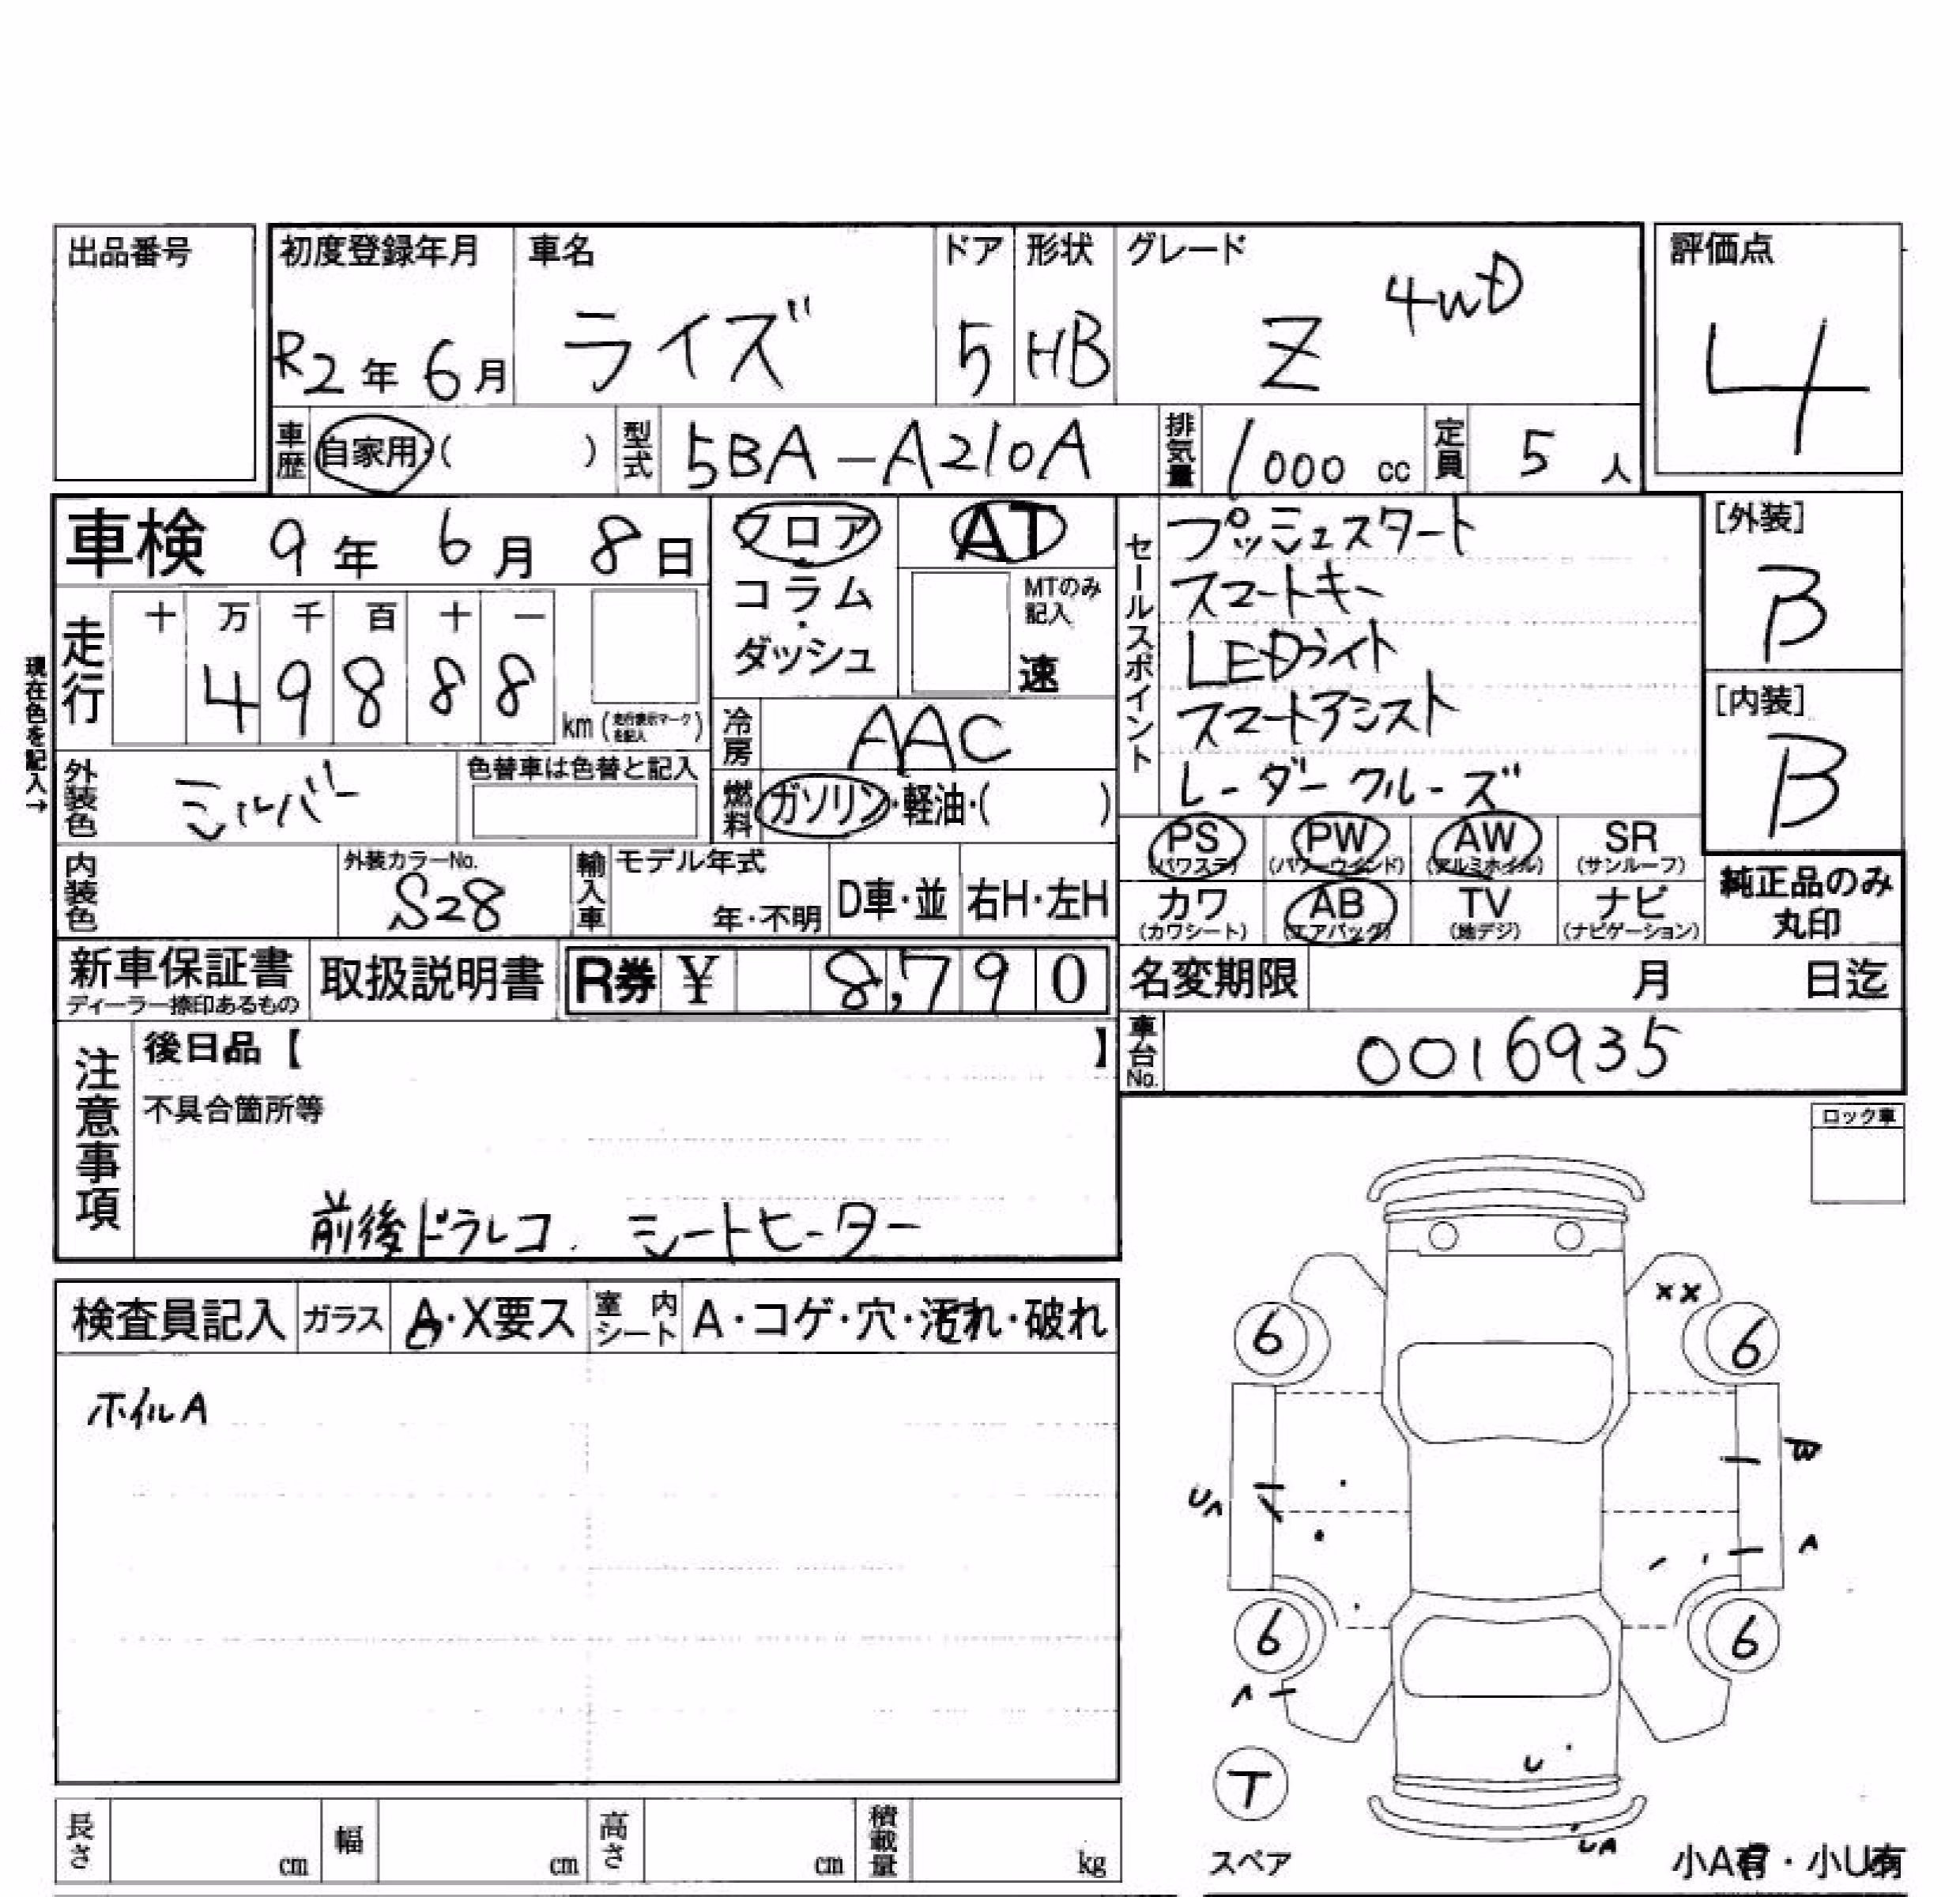 出品番号
初度登録年月 車名 ドア 形状 グレード 評価点
R2年6月 ライズ 5 HB Z 4WD 4
車歴 自家用・( ) 型式 5BA-A210A 排気量 1000 cc 定員 5 人
車検 9年 6月 8日 フロア・コラム・ダッシュ AT
MTのみ記入 速
セールスポイント
プッシュスタート
スマートキー
LEDライト
スマートアシスト
レーダークルーズ
[外装] B
[内装] B
現在色を記入→
走行 十 万 千 百 十 一
4 9 8 8 8 km (走行表示マークを記入)
冷房 AAC
燃料 ガソリン・軽油・( )
外装色 シルバー 色替車は色替と記入
内装色 外装カラーNo. S28 輸入車 モデル年式 年・不明 D車・並 右H・左H
PS (パワステ) PW (パワーウインド) AW (アルミホイル) SR (サンルーフ)
カワ (カワシート) AB (エアバッグ) TV (地デジ) ナビ (ナビゲーション)
純正品のみ丸印
新車保証書 ディーラー捺印あるもの 取扱説明書 R券 ¥ 8,790
名変期限 月 日迄
車台No. 0016935
注意事項 後日品【 】
不具合箇所等
前後ドラレコ. シートヒーター
ロック車
検査員記入 ガラス A・X要ス 室内シート A・コゲ・穴・汚れ・破れ
ホイルA
XX
6 6
W
UA
A
6 6
A
U
T
スペア
UA
小A有・小U有
長さ cm 幅 cm 高さ cm 積載量 kg